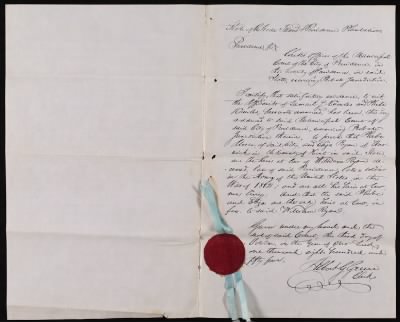 State of Rhode Island Providence Plantations
Providence
Clerks office of the Municipal
Court of the City of Providence in
the County of Providence in said
State, exercising Probate Jurisdiction
I certify, that satisfactory evidence, to wit
the affidavits of Samuel Knowles and
has been this day
adduced to said Municipal Court of
said City of Providence, exercising Probate
Jurisdiction therein, to prove that Phebe
of said City, and Eliza Ryan of
in the County of Kent in said State
are the heirs at law of William Ryan de-
ceased, late of said Providence, late a soldier
in the Army of the United States in the
War of 1812; and are all his heirs at law
now living. And that the said Phebe
and Eliza are the only heirs at law, in
fee to said William Ryan.
Given under my hand and the
seal of said Court, this third day of
October, in the year of Our Lord
one thousand eight hundred and
fifty five.
Albert G. Greene
Clerk